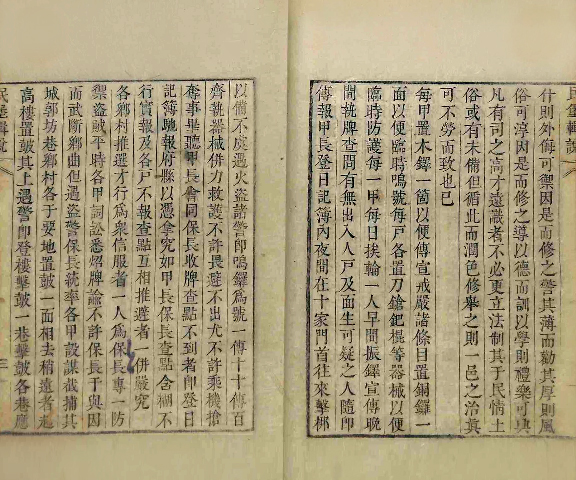 民堡輯說
什則外侮可禦因是而修之警其薄而勸其厚則風
俗可淳因是而修之導以德而訓以學則禮樂可興
凡有司之高才遠識者不必更立法制其于民情土
俗或有未備但循此而潤色修舉之則一邑之治眞
可不勞而致也已
每甲置木鐸一箇以便傳宣戒嚴諸條目置銅鑼一
面以便臨時鳴號每戶各置刀鎗鈀棍等器械以便
臨時防護每一甲每日挨輪一人早間振鐸宣傳晚
間執牌查問有無出入人戶及面生可疑之人隨即
傳報甲長登日記簿內夜間在十家門首往來擊梆
以備不虞遇火盜諸警卽鳴鑼爲號一傳十十傳百
齊執器械倂力救護不許畏避不出尤不許乘機搶
奪事畢聽甲長會同保長收牌查點不到者卽登日
記簿馳報府縣以憑拿究如甲長保長查點含糊不
行實報及各戶不報查點互相推避者一倂嚴究
各鄕村推選才行爲衆信服者一人爲保長專一防
禦盜賊平時各甲詞訟悉炤牌諭不許保長干與因
而武斷鄕曲但遇盜警保長統率各甲設謀截捕其
城郭坊巷鄕村各于要地置鼓一面相去稍遠者起
高樓置鼓其上遇警卽登樓擊鼓一巷擊鼓各巷應
民堡輯說
三